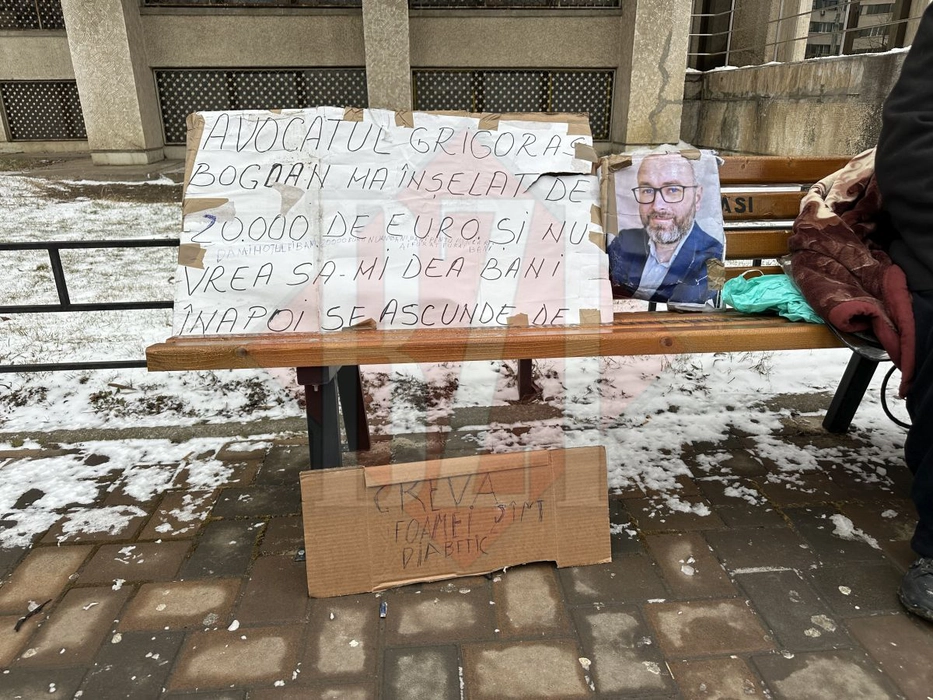 AVOCATUL GRIGORAȘ
BOGDAN MA ÎNȘELAT DE
20000 DE EURO ȘI NU
VREA SA-MI DEA BANI
ÎNAPOI SE ASCUNDE DE
ASI
GREVA
FOAMEI SÎNT
DIABETIC